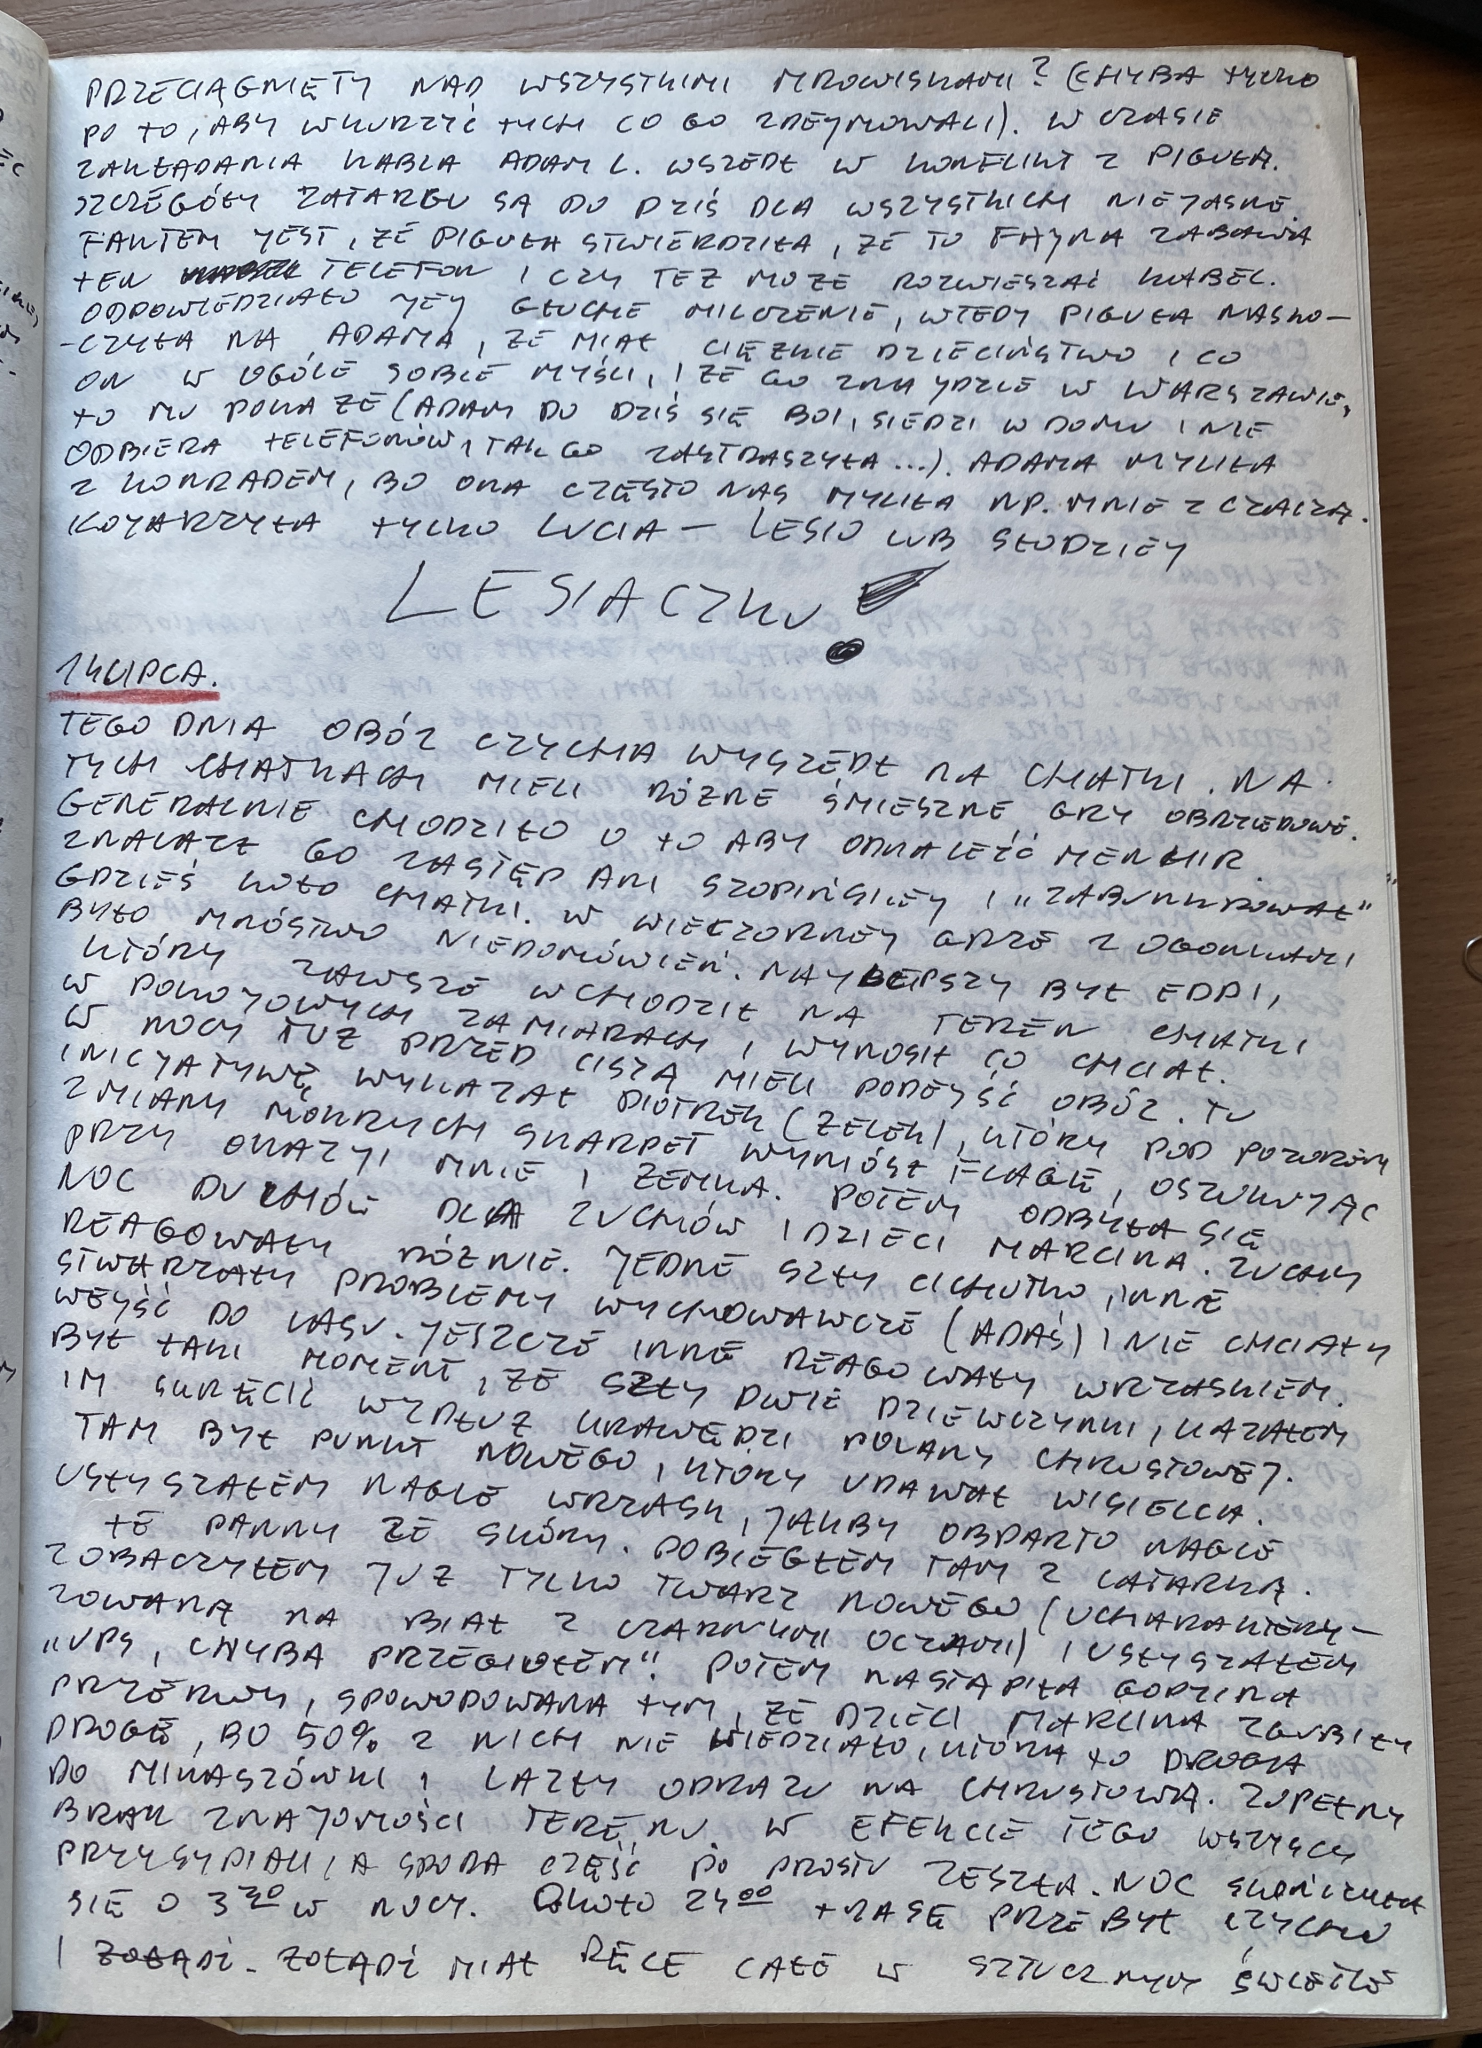 PRZECIĄGNIĘTY NAD WSZYSTKIMI MROWISKAMI? (CHYBA TYLKO
PO TO, ABY WKURZYĆ TYCH CO GO ZDEJMOWALI). W CZASIE
ZAKŁADANIA KABLA ADAM L. WSZEDŁ W KONFLIKT Z PIGUŁĄ.
SZCZEGÓŁY ZATARGU SĄ DO DZIŚ DLA WSZYSTKICH NIEJASNE.
FAKTEM JEST, ŻE PIGUŁA STWIERDZIŁA, ŻE TO FAJNA ZABAWA
TEN TELEFON I CZY TEŻ MOŻE ROZWIESZAĆ KABEL.
ODPOWIEDZIAŁO JEJ GŁUCHE MILCZENIE, WTEDY PIGUŁA NASKO-
-CZYŁA NA ADAMA, ŻE MIAŁ CIĘŻKIE DZIECIŃSTWO I CO
ON W OGÓLE SOBIE MYŚLI, I ŻE GO ZNAJDZIE W WARSZAWIE,
TO MU POKAŻE (ADAM DO DZIŚ SIĘ BOI, SIEDZI W DOMU I NIE
ODBIERA TELEFONÓW, TAK GO ZASTRASZYŁA...). ADAMA MYLIŁA
Z KONRADEM, BO ONA CZĘSTO NAS MYLIŁA NP. MNIE Z CZACZĄ.
KOJARZYŁA TYLKO LUCIA - LESIO LUB SŁODZIEJ
LESIACZKU!
14 LIPCA.
TEGO DNIA OBÓZ CZYCHA WYSZEDŁ NA CHATKI. NA
TYCH CHATKACH MIELI RÓŻNE ŚMIESZNE GRY OBRZĘDOWE.
GENERALNIE CHODZIŁO O TO ABY ODNALEŹĆ MENHIR.
ZNALAZŁ GO ZASTĘP ANI SZOPIŃSKIEJ I „ZABUNKROWAŁ"
GDZIEŚ KOŁO CHATKI. W WIECZORNEJ GRZE Z OGONKAMI
BYŁO MNÓSTWO NIEDOMÓWIEŃ. NAJLEPSZY BYŁ EDDI,
KTÓRY ZAWSZE WCHODZIŁ NA TEREN CHATKI
W POKOJOWYCH ZAMIARACH I WYNOSIŁ CO CHCIAŁ.
W NOCY TUŻ PRZED CISZĄ MIELI PODEJŚĆ OBÓZ. TU
INICJATYWĘ WYKAZAŁ PIOTREK (ZELEK), KTÓRY POD POZOREM
ZMIANY MOKRYCH SKARPET WYNIÓSŁ FLAGĘ, OSZUKUJĄC
PRZY OKAZJI MNIE I ZEMKA. POTEM ODBYŁA SIĘ
NOC DUCHÓW DLA ZUCHÓW I DZIECI MARCINA. ZUCHY
REAGOWAŁY RÓŻNIE. JEDNE SZŁY CICHUTKO, INNE
STWARZAŁY PROBLEMY WYCHOWAWCZE (ADAŚ) I NIE CHCIAŁY
WEJŚĆ DO LASU. JESZCZE INNE REAGOWAŁY WRZASKIEM.
BYŁ TAKI MOMENT, ŻE SZŁY DWIE DZIEWCZYNKI, KAZAŁEM
IM SKRĘCIĆ WZDŁUŻ KRAWĘDZI POLANY CHRUSTOWEJ.
TAM BYŁ PUNKT NOWEGO, KTÓRY UDAWAŁ WISIELCA.
USŁYSZAŁEM NAGLE WRZASK, JAKBY OBDARTO NAGLE
TE PANNY ZE SKÓRY. POBIEGŁEM TAM Z LATARKĄ.
ZOBACZYŁEM JUŻ TYLKO TWARZ NOWEGO (UCHARAKTERY-
ZOWANĄ NA BIAŁ Z CZARNYMI OCZAMI) I USŁYSZAŁEM
„UPS, CHYBA PRZEGIĄŁEM". POTEM NASTĄPIŁA GODZINA
PRZERWY, SPOWODOWANA TYM, ŻE DZIECI MARCINA ZGUBIŁY
DROGĘ, BO 50% Z NICH NIE WIEDZIAŁO, KTÓRA TO DROGA
DO MIKASZÓWKI I LAZŁY ODRAZU NA CHRUSTOWĄ. ZUPEŁNY
BRAK ZNAJOMOŚCI TERENU. W EFEKCIE TEGO WSZYSCY
PRZYSYPIALI, A SPORA CZĘŚĆ PO PROSTU ZESZŁA. NOC SKOŃCZYŁA
SIĘ O 3 30 W NOCY. OKOŁO 24 00 TRASĘ PRZEBYŁ CZYCHU
I ŻOŁĄDŹ. ŻOŁĄDŹ MIAŁ RĘCE CAŁE W SZTUCZNYM ŚWIETLE